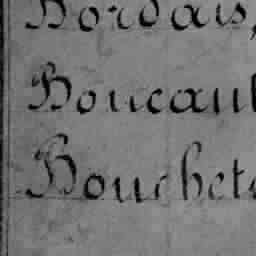 Bordais,
Boucaul
Bouchet